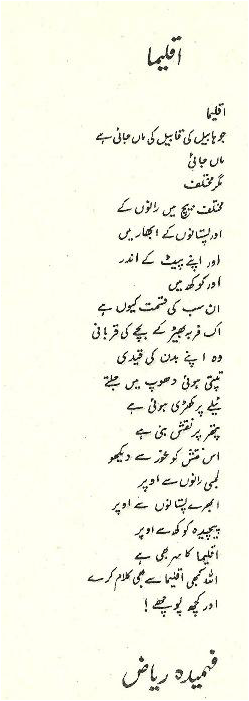 اقلیما
اقلیما
جو ہابیل کی قابیل کی ماں جائی ہے
ماں جائی
مگر مختلف
مختلف بیچ میں رانوں کے
اور پستانوں کے ابھار میں
اور اپنے پیٹ کے اندر
اور کوکھ میں
ان سب کی قسمت کیوں ہے
اک فربہ بھیڑ کے بچے کی قربانی
وہ اپنے بدن کی قیدی
تپتی ہوئی دھوپ میں جلتے
ٹیلے پر کھڑی ہوئی ہے
پتھر پر نقش بنی ہے
اس نقش کو غور سے دیکھو
لمبی رانوں سے اوپر
ابھرے پستانوں سے اوپر
پیچیدہ کوکھ سے اوپر
اقلیما کا سر بھی ہے
اللہ کبھی اقلیما سے بھی کلام کرے
اور کچھ پوچھے!
فہمیدہ ریاض